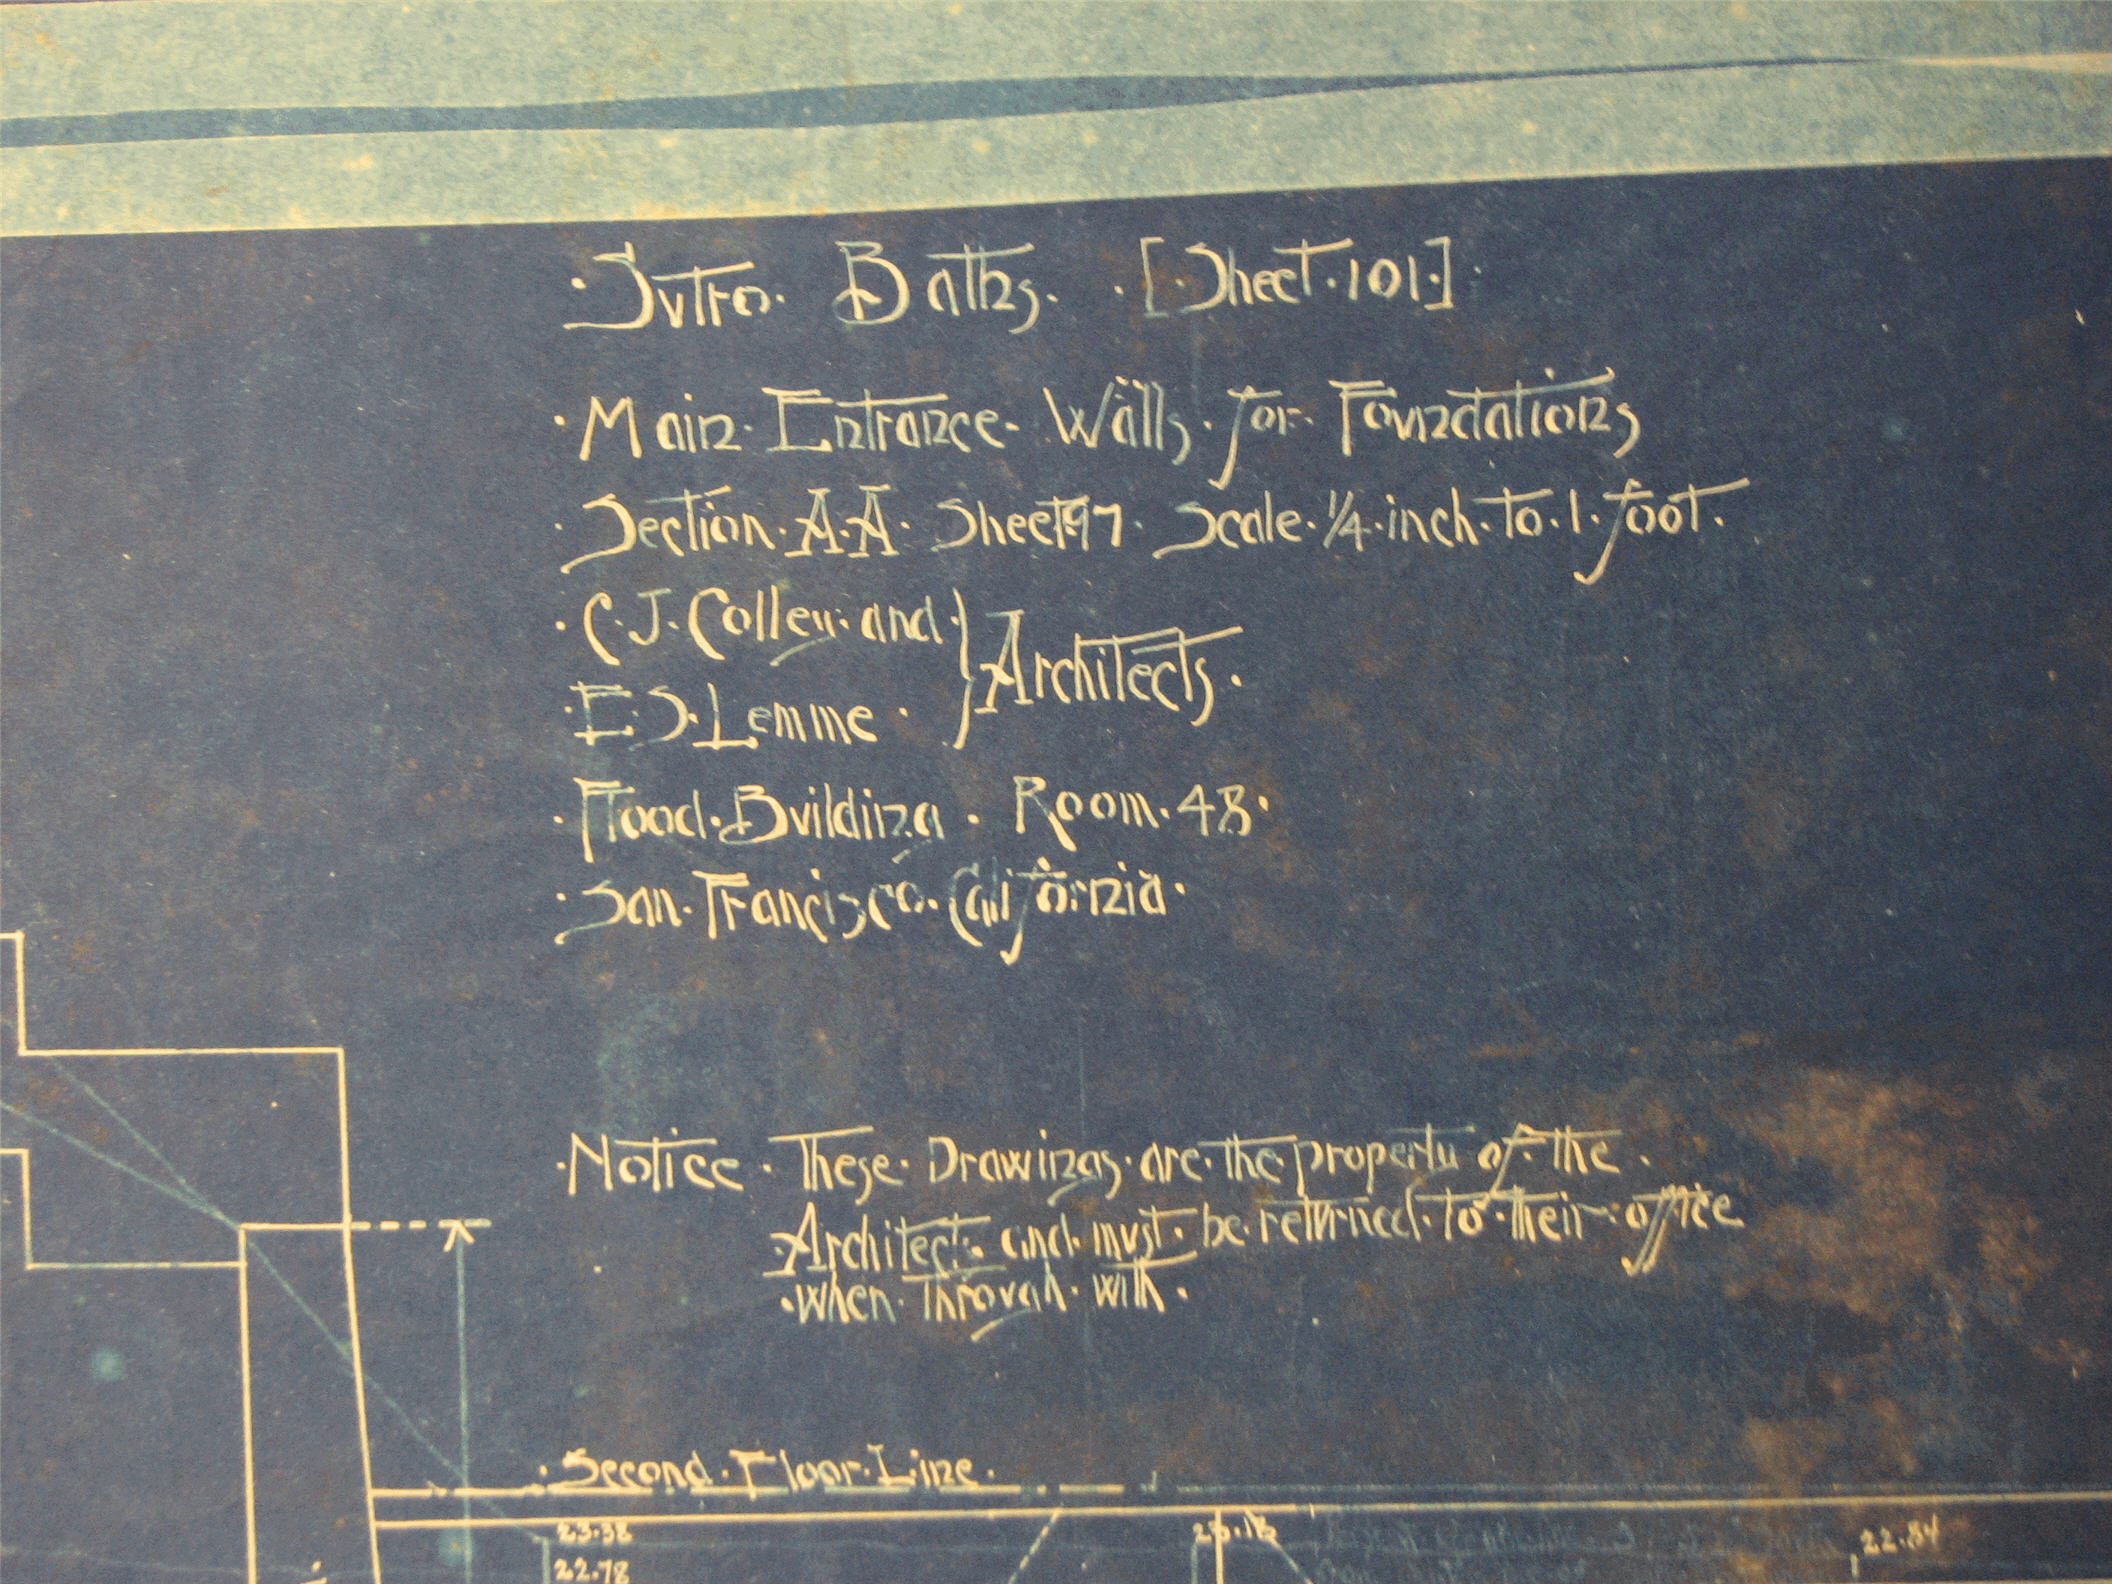 ·Sutro· Baths· ·[·Sheet·101·]·
·Main·Entrance· Walls·for·Foundations
·Section·A·A· Sheet 97· Scale·¼·inch·to·1·foot·
·C·J·Colley·and·} Architects·
·E S·Lemme·
·Flood·Building· Room·48·
·San·Francisco·California·
·Notice· These·Drawings·are·the·property of·the·
·Architects and·must·be·returned·to·their·office
·when·through·with·
·Second·Floor·Line·
23·38
22·84
22·78